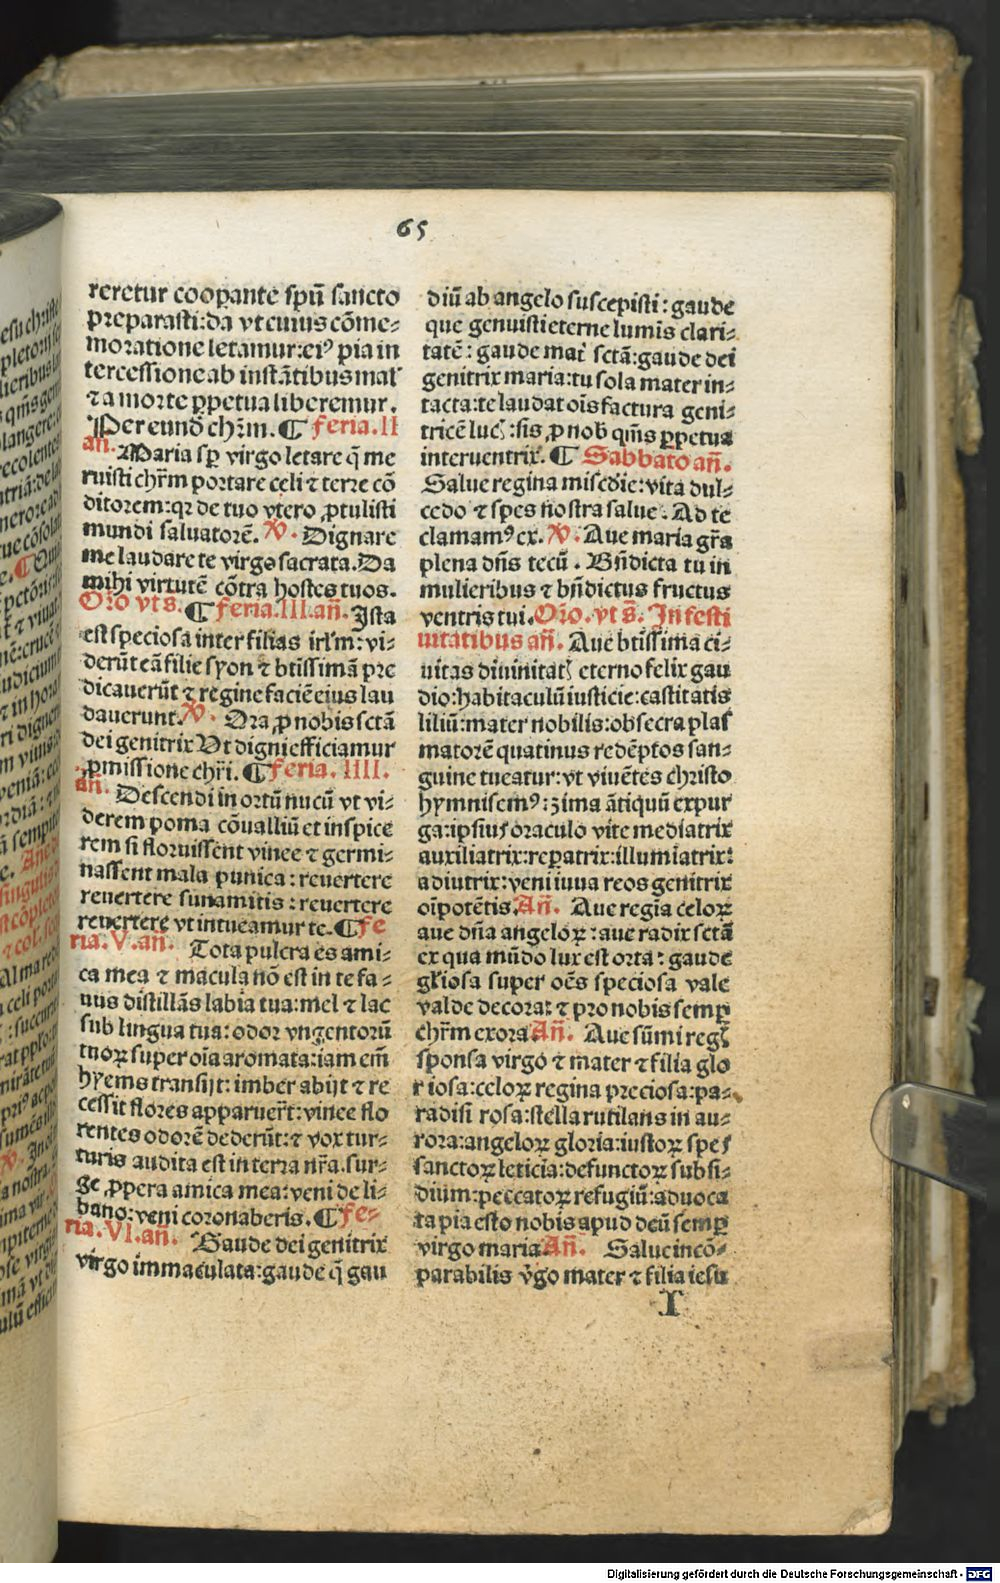 65
reretur cooꝑante spū sancto
preparasti:da vt cuius cōme-
moratione letamur:eiꝰ pia in
tercessione ab instātibus mal'
⁊ a morte ꝑpetua liberemur.
Per eundē chr̄m. ¶ feria.II
añ. Maria sꝑ virgo letare q̄ me
ruisti chr̄m portare celi ⁊ terre cō
ditorem:qꝛ de tuo vtero ꝓtulisti
mundi saluatorē. ℣. Dignare
me laudare te virgo sacrata. Da
mihi virtutē cōtra hostes tuos.
Oro vt s. ¶ feria.III.añ. Ista
est speciosa inter filias irl'm: vi-
derūt eā filie syon ⁊ btissimā pre
dicauerūt ⁊ regine faciē eius lau
dauerunt. ℣. Ora ꝓ nobis sctā
dei genitrix Vt digni efficiamur
ꝓmissione chr̄i. ¶ feria. IIII.
añ. Descendi in ortū nucū vt vi-
derem poma cōualliū et inspice
rem si floruissent vinee ⁊ germi-
nassent mala punica: reuertere
reuertere sunamitis: reuertere
reuertere vt intueamur te. ¶ fe
ria.V.añ. Tota pulcra es ami-
ca mea ⁊ macula nō est in te fa-
uus distillās labia tua:mel ⁊ lac
sub lingua tua: odor vngentorū
tuoꝝ super oīa aromata:iam em̄
hyems transijt: imber abijt ⁊ re
cessit flores apparuer̄t: vinee flo
rentes odorē dederūt:⁊ vox tur-
turis audita est in terra nr̄a.sur-
ge ꝓpera amica mea: veni de li-
bano: veni coronaberis. ¶ fe-
ria.VI.añ. Gaude dei genitrix
virgo immaculata:gaude q̄ gau
diū ab angelo suscepisti: gaude
que genuisti eterne lumīs clari-
tatē: gaude mat̄ sctā:gaude dei
genitrix maria:tu sola mater in-
tacta:te laudat oīs factura geni-
tricē lucꝭ:sis ꝓ nob̄ qm̄s ꝑpetua
interuentrix. ¶ Sabbato añ.
Salue regina misedie: vita dul-
cedo ⁊ spes nostra salue. Ad te
clamamꝰ ex. ℣. Aue maria gr̄a
plena dn̄s tecū. Bn̄dicta tu in
mulieribus ⁊ bn̄dictus fructus
ventris tui. Oro. vt s̄. In festi
uitatibus añ. Aue btissima ci-
uitas diuinitatꝭ eterno felix gau
dio:habitaculū iusticie:castitatis
liliū:mater nobilis:obsecra plas
matorē quatinus redēptos san-
guine tueatur:vt viuētes christo
hymnisemꝰ:zima ātiquū expur
ga:ipsius oraculo vite mediatrix
auxiliatrix:reꝑatrix:illumīatrix:
adiutrix:veni iuua reos genitrix
oīpotētis. Añ. Aue regīa celoꝝ
aue dn̄a angeloꝝ: aue radix sctā
ex qua mūdo lux est orta: gaude
gl'iosa super oēs speciosa vale
valde decora: ⁊ pro nobis semꝑ
chr̄m exora Añ. Aue sūmi regꝭ
sponsa virgo ⁊ mater ⁊ filia glo
riosa:celoꝝ regina preciosa:pa-
radisi rosa:stella rutilans in au-
rora:angeloꝝ gloria:iustoꝝ spes
sanctoꝝ leticia:defunctoꝝ subsi-
dium:peccatoꝝ refugiū:aduoca
ta pia esto nobis apud deū semꝑ
virgo maria Añ. Salue incō-
parabilis v̄go mater ⁊ filia iesu
I
Digitalisierung gefördert durch die Deutsche Forschungsgemeinschaft - DFG